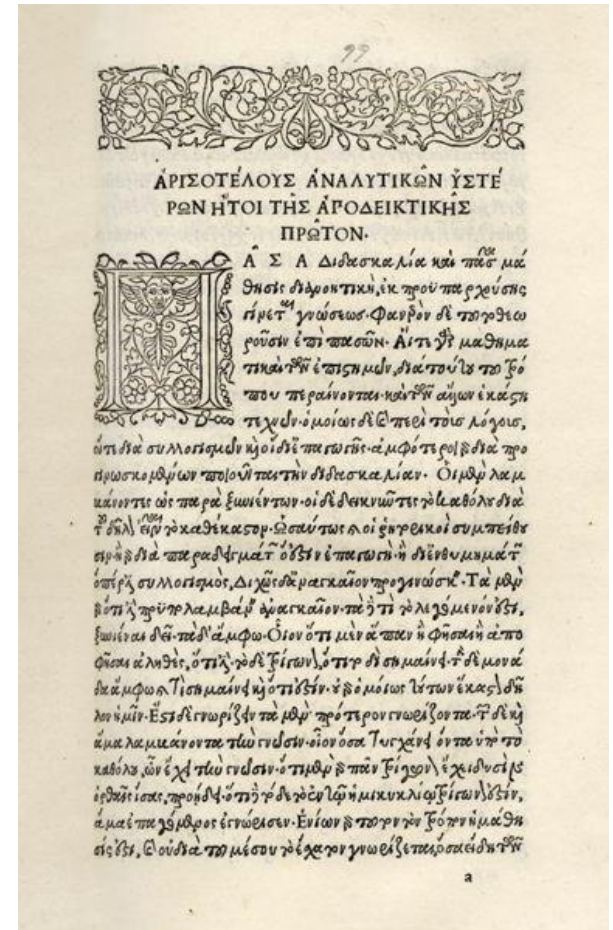 99
ΑΡΙΣΟΤΕΛΟΥΣ ΑΝΑΛΥΤΙΚΩΝ ΥΣΤΕ
ΡΩΝ ΗΤΟΙ ΤΗΣ ΑΠΟΔΕΙΚΤΙΚΗΣ
ΠΡΩΤΟΝ.
ΠΑ͂ΣΑ διδασκαλία καὶ πᾶσα μά
θησις διανοητικὴ, ἐκ προϋπαρχούσης
γίνεται γνώσεως. Φανερὸν δὲ τοῦτο θεω
ροῦσιν ἐπὶ πασῶν. Αἵ τε γὰρ μαθημα
τικαὶ τῶν ἐπιστημῶν, διὰ τούτου τοῦ τρό
που περαίνονται. καὶ τῶν ἄλλων ἑκάστη
τεχνῶν. ὁμοίως δὲ καὶ περὶ τοὺς λόγους,
οἵ τε διὰ συλλογισμῶν καὶ οἱ δι' ἐπαγωγῆς. ἀμφότεροι γὰρ διὰ προ
γινωσκομένων ποιοῦνται τὴν διδασκαλίαν. Οἱ μὲν λαμ
βάνοντες ὡς παρὰ ξυνιέντων. οἱ δὲ δεικνύντες τὸ καθόλου διὰ
τοῦ δῆλον εἶναι τὸ καθέκαστον. Ὡσαύτως δὲ οἱ ῥητορικοὶ συμπείθου
σιν. ἢ γὰρ διὰ παραδειγμάτων ὅ ἐστιν ἐπαγωγὴ. ἢ δι' ἐνθυμημάτων
ὅπερ ἐστὶ συλλογισμὸς. Διχῶς δ' ἀναγκαῖον προγινώσκειν. Τὰ μὲν
γὰρ ὅτι ἔστι προϋπολαμβάνειν ἀναγκαῖον. τὰ δὲ τί τὸ λεγόμενόν ἐστι,
ξυνιέναι δεῖ. τὰ δ' ἄμφω. Οἷον ὅτι μὲν ἅπαν ἢ φῆσαι ἢ ἀπο
φῆσαι ἀληθὲς, ὅτι ἔστι. τὸ δὲ τρίγωνον, ὅτι τοδὶ σημαίνει. τὴν δὲ μονά
δα ἄμφω καὶ τί σημαίνει καὶ ὅτι ἔστιν. οὐ γὰρ ὁμοίως τούτων ἕκαστον δῆ
λον ἡμῖν. Ἔστι δὲ γνωρίζειν τὰ μὲν πρότερον γνωρίζοντα. τῶν δὲ καὶ
ἅμα λαμβάνοντα τὴν γνῶσιν. οἷον ὅσα τυγχάνει ὄντα ὑπὸ τὸ
καθόλου, ὧν ἔχει τὴν γνῶσιν. ὅτι μὲν γὰρ πᾶν τρίγωνον ἔχει δυσὶν
ὀρθαῖς ἴσας, προῄδει. ὅτι δὲ τόδε τὸ ἐν τῷ ἡμικυκλίῳ τρίγωνόν ἐστιν,
ἅμα ἐπαγόμενος ἐγνώρισεν. Ἐνίων γὰρ τοῦτον τὸν τρόπον ἡ μάθη
σίς ἐστι, καὶ οὐ διὰ τοῦ μέσου τὸ ἔσχατον γνωρίζεται, ὅσα ἤδη τῶν
a